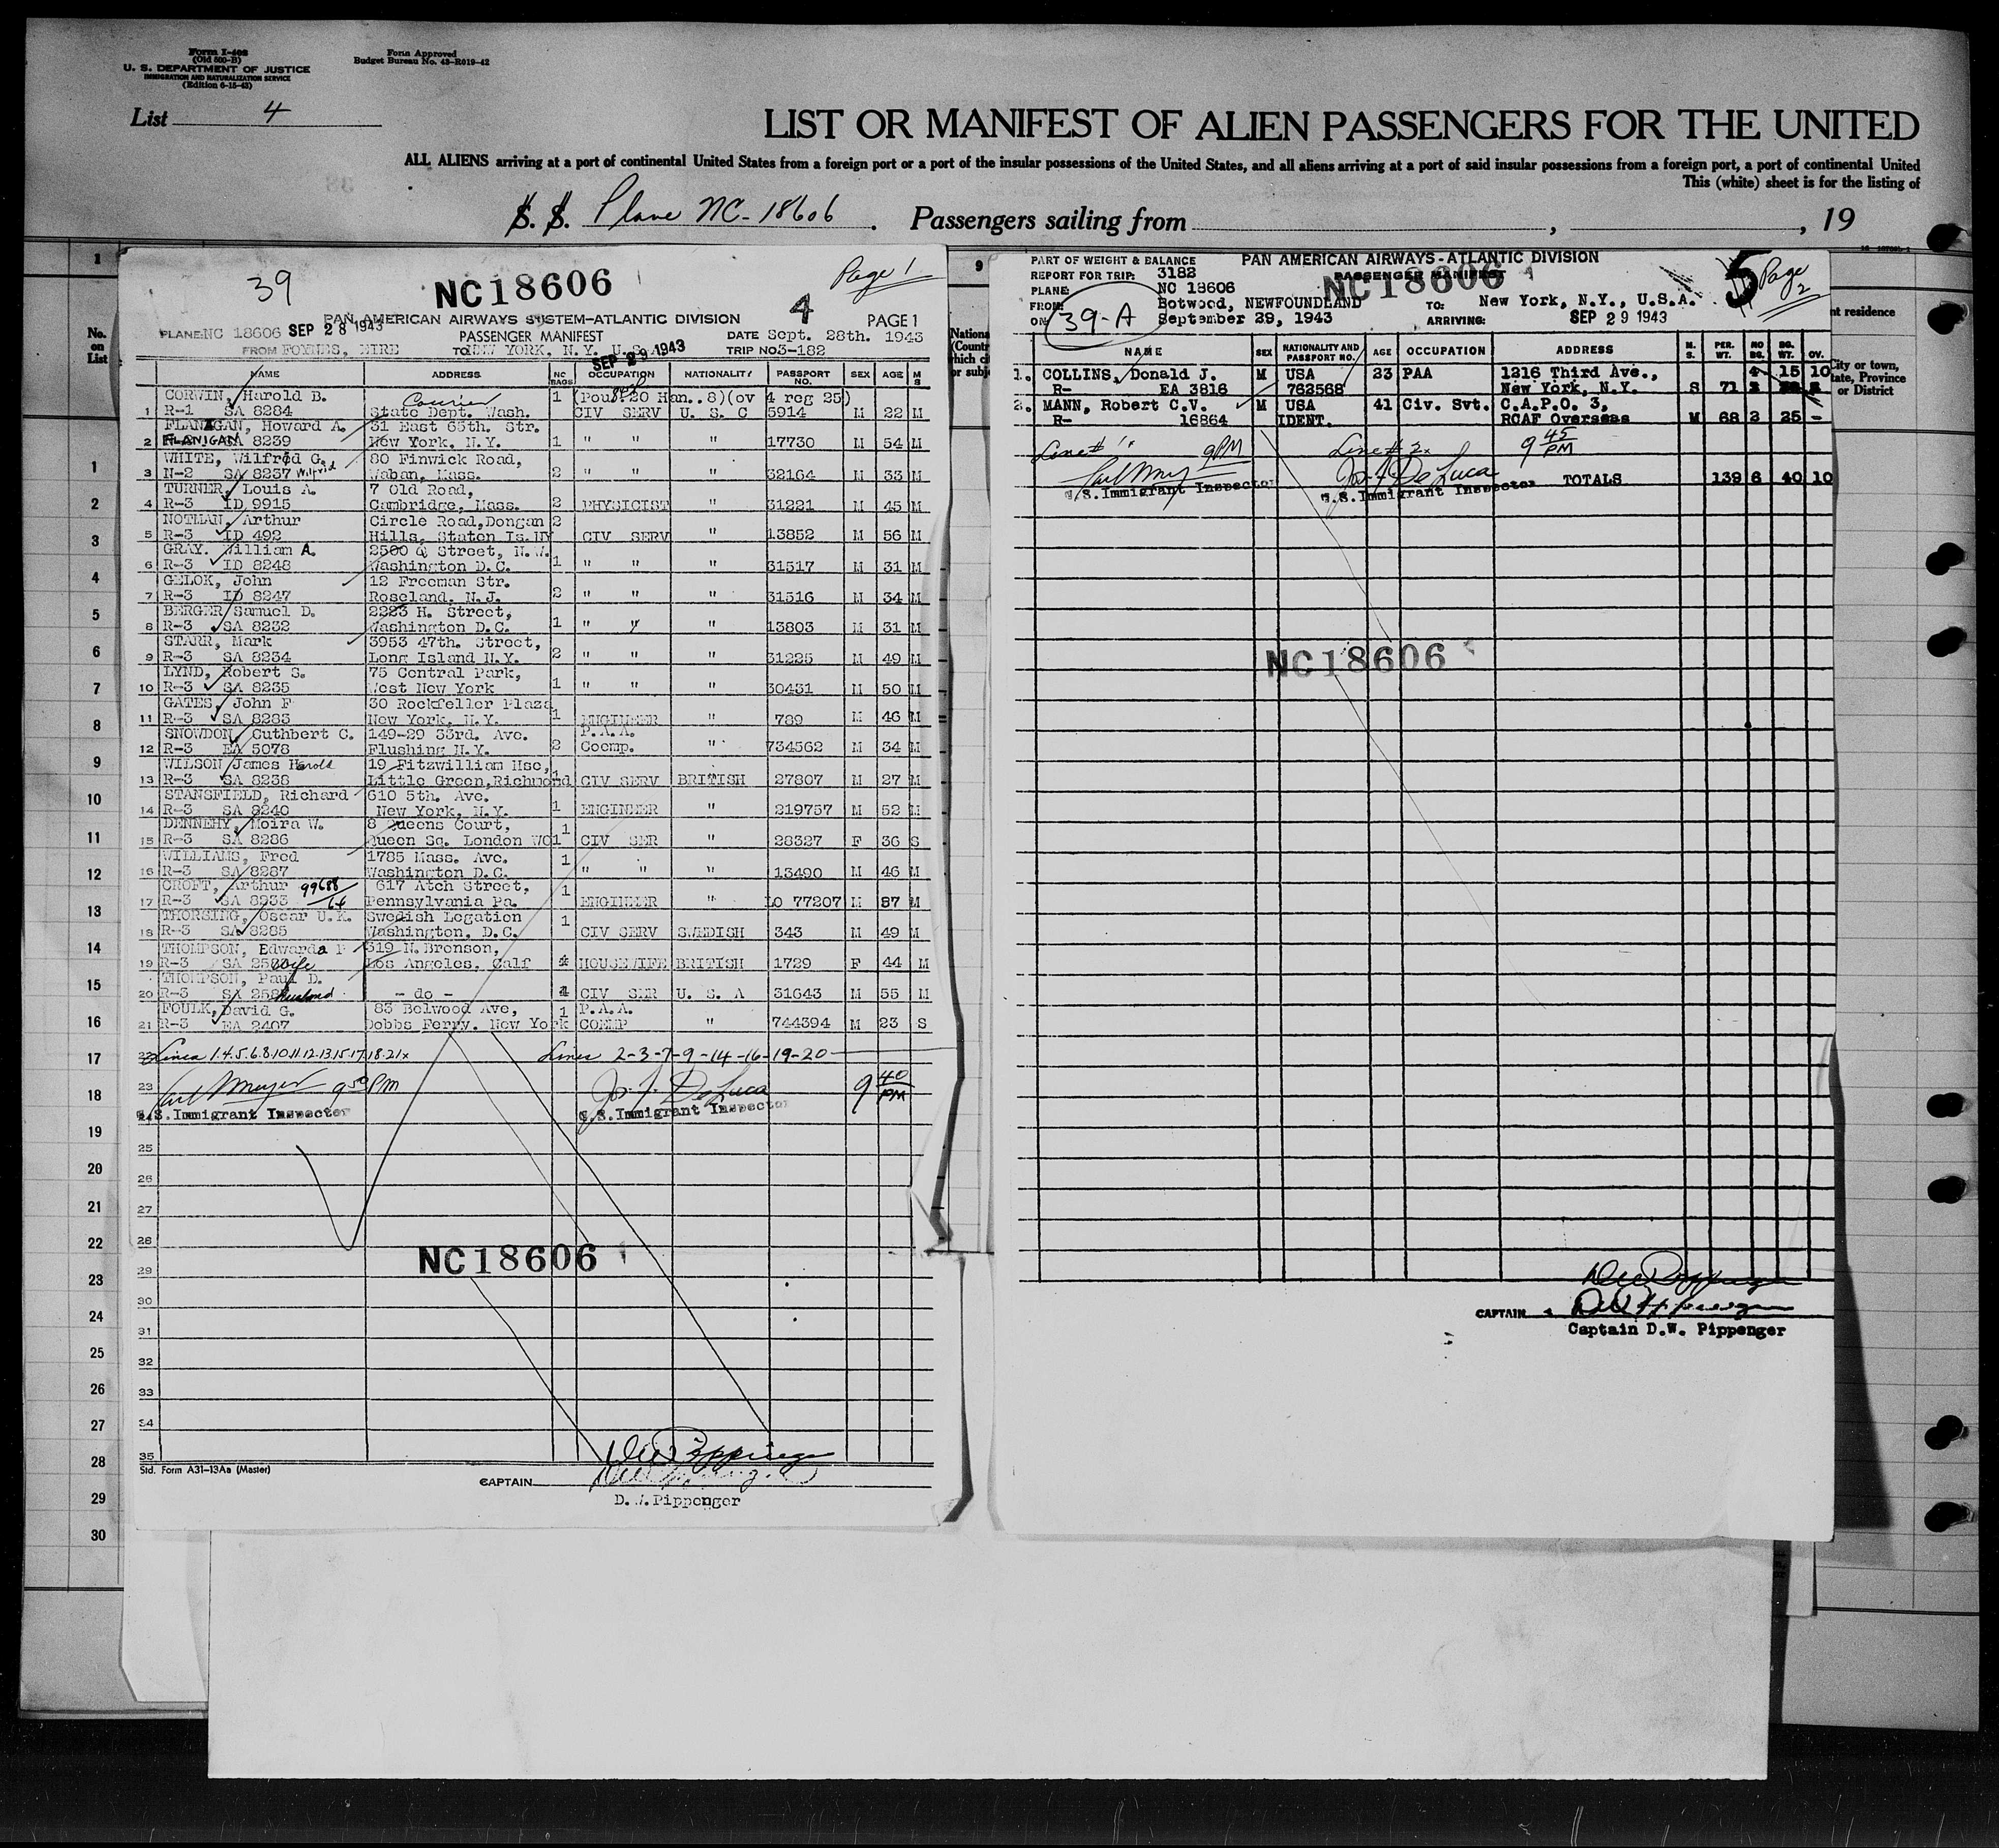 Form I-402
(Old 500-B)
U. S. DEPARTMENT OF JUSTICE
IMMIGRATION AND NATURALIZATION SERVICE
(Edition 6-15-43)
Form Approved
Budget Bureau No. 43-R019-42
List 4
LIST OR MANIFEST OF ALIEN PASSENGERS FOR THE UNITED
ALL ALIENS arriving at a port of continental United States from a foreign port or a port of the insular possessions of the United States, and all aliens arriving at a port of said insular possessions from a foreign port, a port of continental United
This (white) sheet is for the listing of
S. S. Plane NC-18606. Passengers sailing from , , 19
1
No. on List
39
NC18606
4
Page 1
PAN AMERICAN AIRWAYS SYSTEM-ATLANTIC DIVISION PAGE 1
PLANE: NC 18606 SEP 28 1943 PASSENGER MANIFEST DATE Sept. 28th. 1943
FROM FOYNES, EIRE TO NEW YORK, N.Y. U.S.A. SEP 29 1943 TRIP NO 3-182
NAME ADDRESS NO BAGS OCCUPATION NATIONALITY PASSPORT NO. SEX AGE M S
CORWIN, Harold B. Courier 1 (Pou. 20 Han..8)(ov 4 reg 25)
1 R-1 SA 8284 State Dept. Wash. CIV SERV U. S. C 5914 M 22 M
FLANAGAN, Howard A. 31 East 65th. Str.
2 FLANIGAN SA 8239 New York. N.Y. 1 " " " 17730 M 54 M
WHITE, Wilfred G. 80 Finwick Road,
3 N-2 SA 8237 Wilfrid Waban, Mass. 2 " " " 32164 M 33 M
TURNER, Louis A. 7 Old Road,
4 R-3 ID 9915 Cambridge, Mass. 2 PHYSICIST " 31221 M 45 M
NOTMAN, Arthur Circle Road, Dongan 2
5 R-3 ID 492 Hills, Staten Is. NY CIV SERV " 13852 M 56 M
GRAY. William A. 2500 Q Street, N.W.
6 R-3 ID 8248 Washington D.C. 1 " " " 31517 M 31 M
GELOK, John 12 Freeman Str.
7 R-3 ID 8247 Roseland, N.J. 2 " " " 31516 M 34 M
BERGER, Samuel D. 2223 H. Street,
8 R-3 SA 8232 Washington D.C. 1 " " " 13803 M 31 M
STARR, Mark 3953 47th. Street,
9 R-3 SA 8234 Long Island N.Y. 2 " " " 31225 M 49 M
LYND, Robert S. 75 Central Park,
10 R-3 SA 8235 West New York 1 " " " 30431 M 50 M
GATES, John F 30 Rockfeller Plaza
11 R-3 SA 8283 New York, N.Y. 1 ENGINEER " 789 M 46 M
SNOWDON, Cuthbert C. 149-29 33rd. Ave. P.A.A.
12 R-3 EA 5078 Flushing N.Y. 2 Coemp. " 734562 M 34 M
WILSON, James Harold 19 Fitzwilliam Hse,
13 R-3 SA 8238 Little Green, Richmond 1 CIV SERV BRITISH 27807 M 27 M
STANSFIELD, Richard 610 5th. Ave.
14 R-3 SA 8240 New York, N.Y. 1 ENGINEER " 219757 M 52 M
DENNEHY, Moira W. 8 Queens Court, 1
15 R-3 SA 8286 Queen Sq. London WC1 CIV SER " 28327 F 36 S
WILLIAMS, Fred 1785 Mass. Ave. 1
16 R-3 SA 8287 Washington D.C. " " " 13490 M 46 M
CROFT, Arthur 99688/64 617 Atch Street, 1
17 R-3 SA 8233 Pennsylvania Pa. ENGINEER " LO 77207 M 37 M
THORSING, Oscar U.K. Swedish Legation 1
18 R-3 SA 8285 Washington, D.C. CIV SERV SWEDISH 343 M 49 M
THOMPSON, Edwarda P 319 N. Bronson,
19 R-3 SA wife Los Angeles, Calf 4 HOUSEWIFE BRITISH 1729 F 44 M
THOMPSON, Paul D.
20 R-3 SA husband - do - 4 CIV SER U. S. A 31643 M 55 M
FOULK, David G. 83 Belwood Ave, 1 P.A.A.
21 R-3 EA 2407 Dobbs Ferry. New York COEMP " 744394 M 23 S
22 Lines 1.4.5.6.8.10.11.12.13.15.17.18.21x Lines 2-3-7-9-14-16-19-20
23 Karl Meyer 9 50 PM Jos. J. DeLuca 9 40 PM
U.S. Immigrant Inspector U.S. Immigrant Inspector
25
26
27
28
NC18606
29
30
31
32
33
34
35
Std. Form A31-13Aa (Master)
CAPTAIN DW Pippenger
D.W. Pippenger
9
PART OF WEIGHT & BALANCE PAN AMERICAN AIRWAYS-ATLANTIC DIVISION
REPORT FOR TRIP: 3182 PASSENGER MANIFEST
NC18606
5
Page 2
PLANE: NC 18606
FROM: Botwood, NEWFOUNDLAND TO: New York, N.Y., U.S.A.
ON: 39-A September 29, 1943 ARRIVING: SEP 29 1943
NAME SEX NATIONALITY AND PASSPORT NO. AGE OCCUPATION ADDRESS M. S. PER. WT. NO BG. BG. WT. OV.
1. COLLINS, Donald J. M USA 23 PAA 1216 Third Ave., 4 15 10
R- EA 3816 762568 New York, N.Y. S 71
2. MANN, Robert C.V. M USA 41 Civ. Svt. C.A.P.O. 3,
R- 16864 IDENT. RCAF Overseas M 68 2 25 -
Line # 1x 9PM Line # 2x 9 45 PM
Karl Meyer Jos. J. DeLuca
U.S. Immigrant Inspector U.S. Immigrant Inspector TOTALS 139 6 40 10
NC18606
DW Pippenger
CAPTAIN DW Pippenger
Captain D.W. Pippenger
nt residence
City or town,
tate, Province
or District
1
2
3
4
5
6
7
8
9
10
11
12
13
14
15
16
17
18
19
20
21
22
23
24
25
26
27
28
29
30